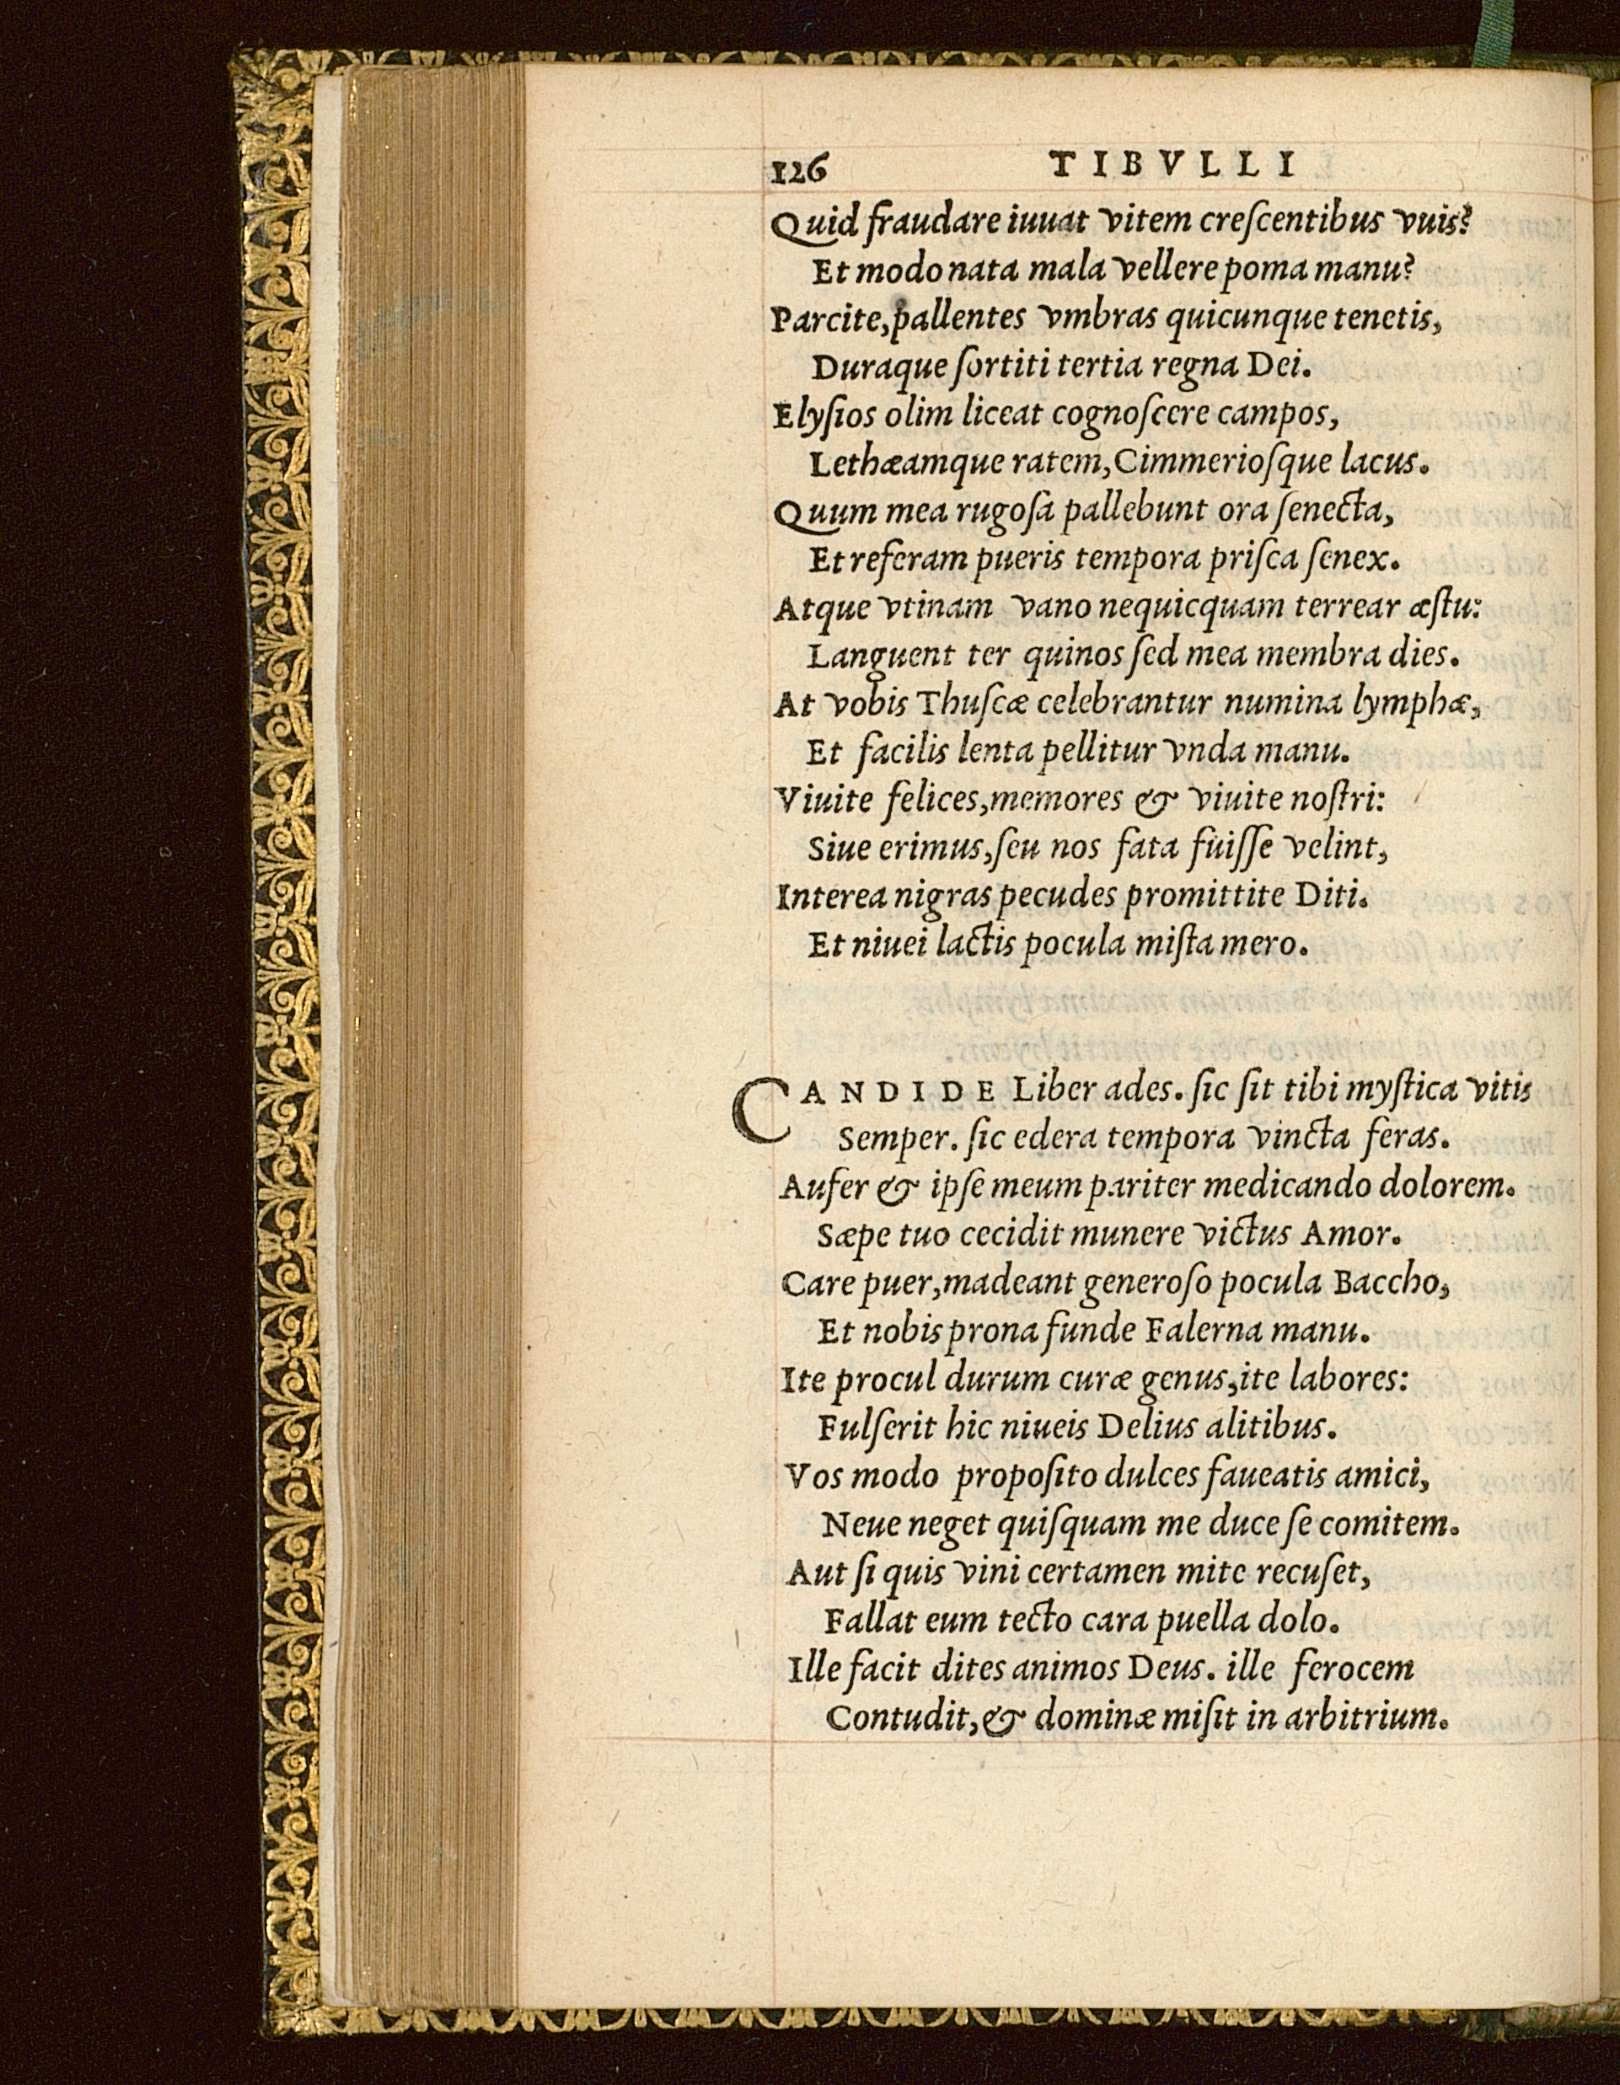 126 TIBVLLI
Quid fraudare iuuat vitem creſcentibus vuis?
Et modo nata mala vellere poma manu?
Parcite, pallentes vmbras quicunque tenetis,
Duraque ſortiti tertia regna Dei.
Elyſios olim liceat cognoſcere campos,
Lethæamque ratem, Cimmerioſque lacus.
Quum mea rugoſa pallebunt ora ſenecta,
Et referam pueris tempora priſca ſenex.
Atque vtinam vano nequicquam terrear æſtu:
Languent ter quinos ſed mea membra dies.
At vobis Thuſcæ celebrantur numina lymphæ,
Et facilis lenta pellitur vnda manu.
Viuite felices, memores & viuite noſtri:
Siue erimus, ſeu nos fata fuiſſe velint,
Interea nigras pecudes promittite Diti.
Et niuei lactis pocula miſta mero.
CANDIDE Liber ades. ſic ſit tibi myſtica vitis
Semper. ſic edera tempora vincta feras.
Aufer & ipſe meum pariter medicando dolorem.
Sæpe tuo cecidit munere victus Amor.
Care puer, madeant generoſo pocula Baccho,
Et nobis prona funde Falerna manu.
Ite procul durum curæ genus, ite labores:
Fulſerit hic niueis Delius alitibus.
Vos modo propoſito dulces faueatis amici,
Neue neget quiſquam me duce ſe comitem.
Aut ſi quis vini certamen mite recuſet,
Fallat eum tecto cara puella dolo.
Ille facit dites animos Deus. ille ferocem
Contudit, & dominæ miſit in arbitrium.